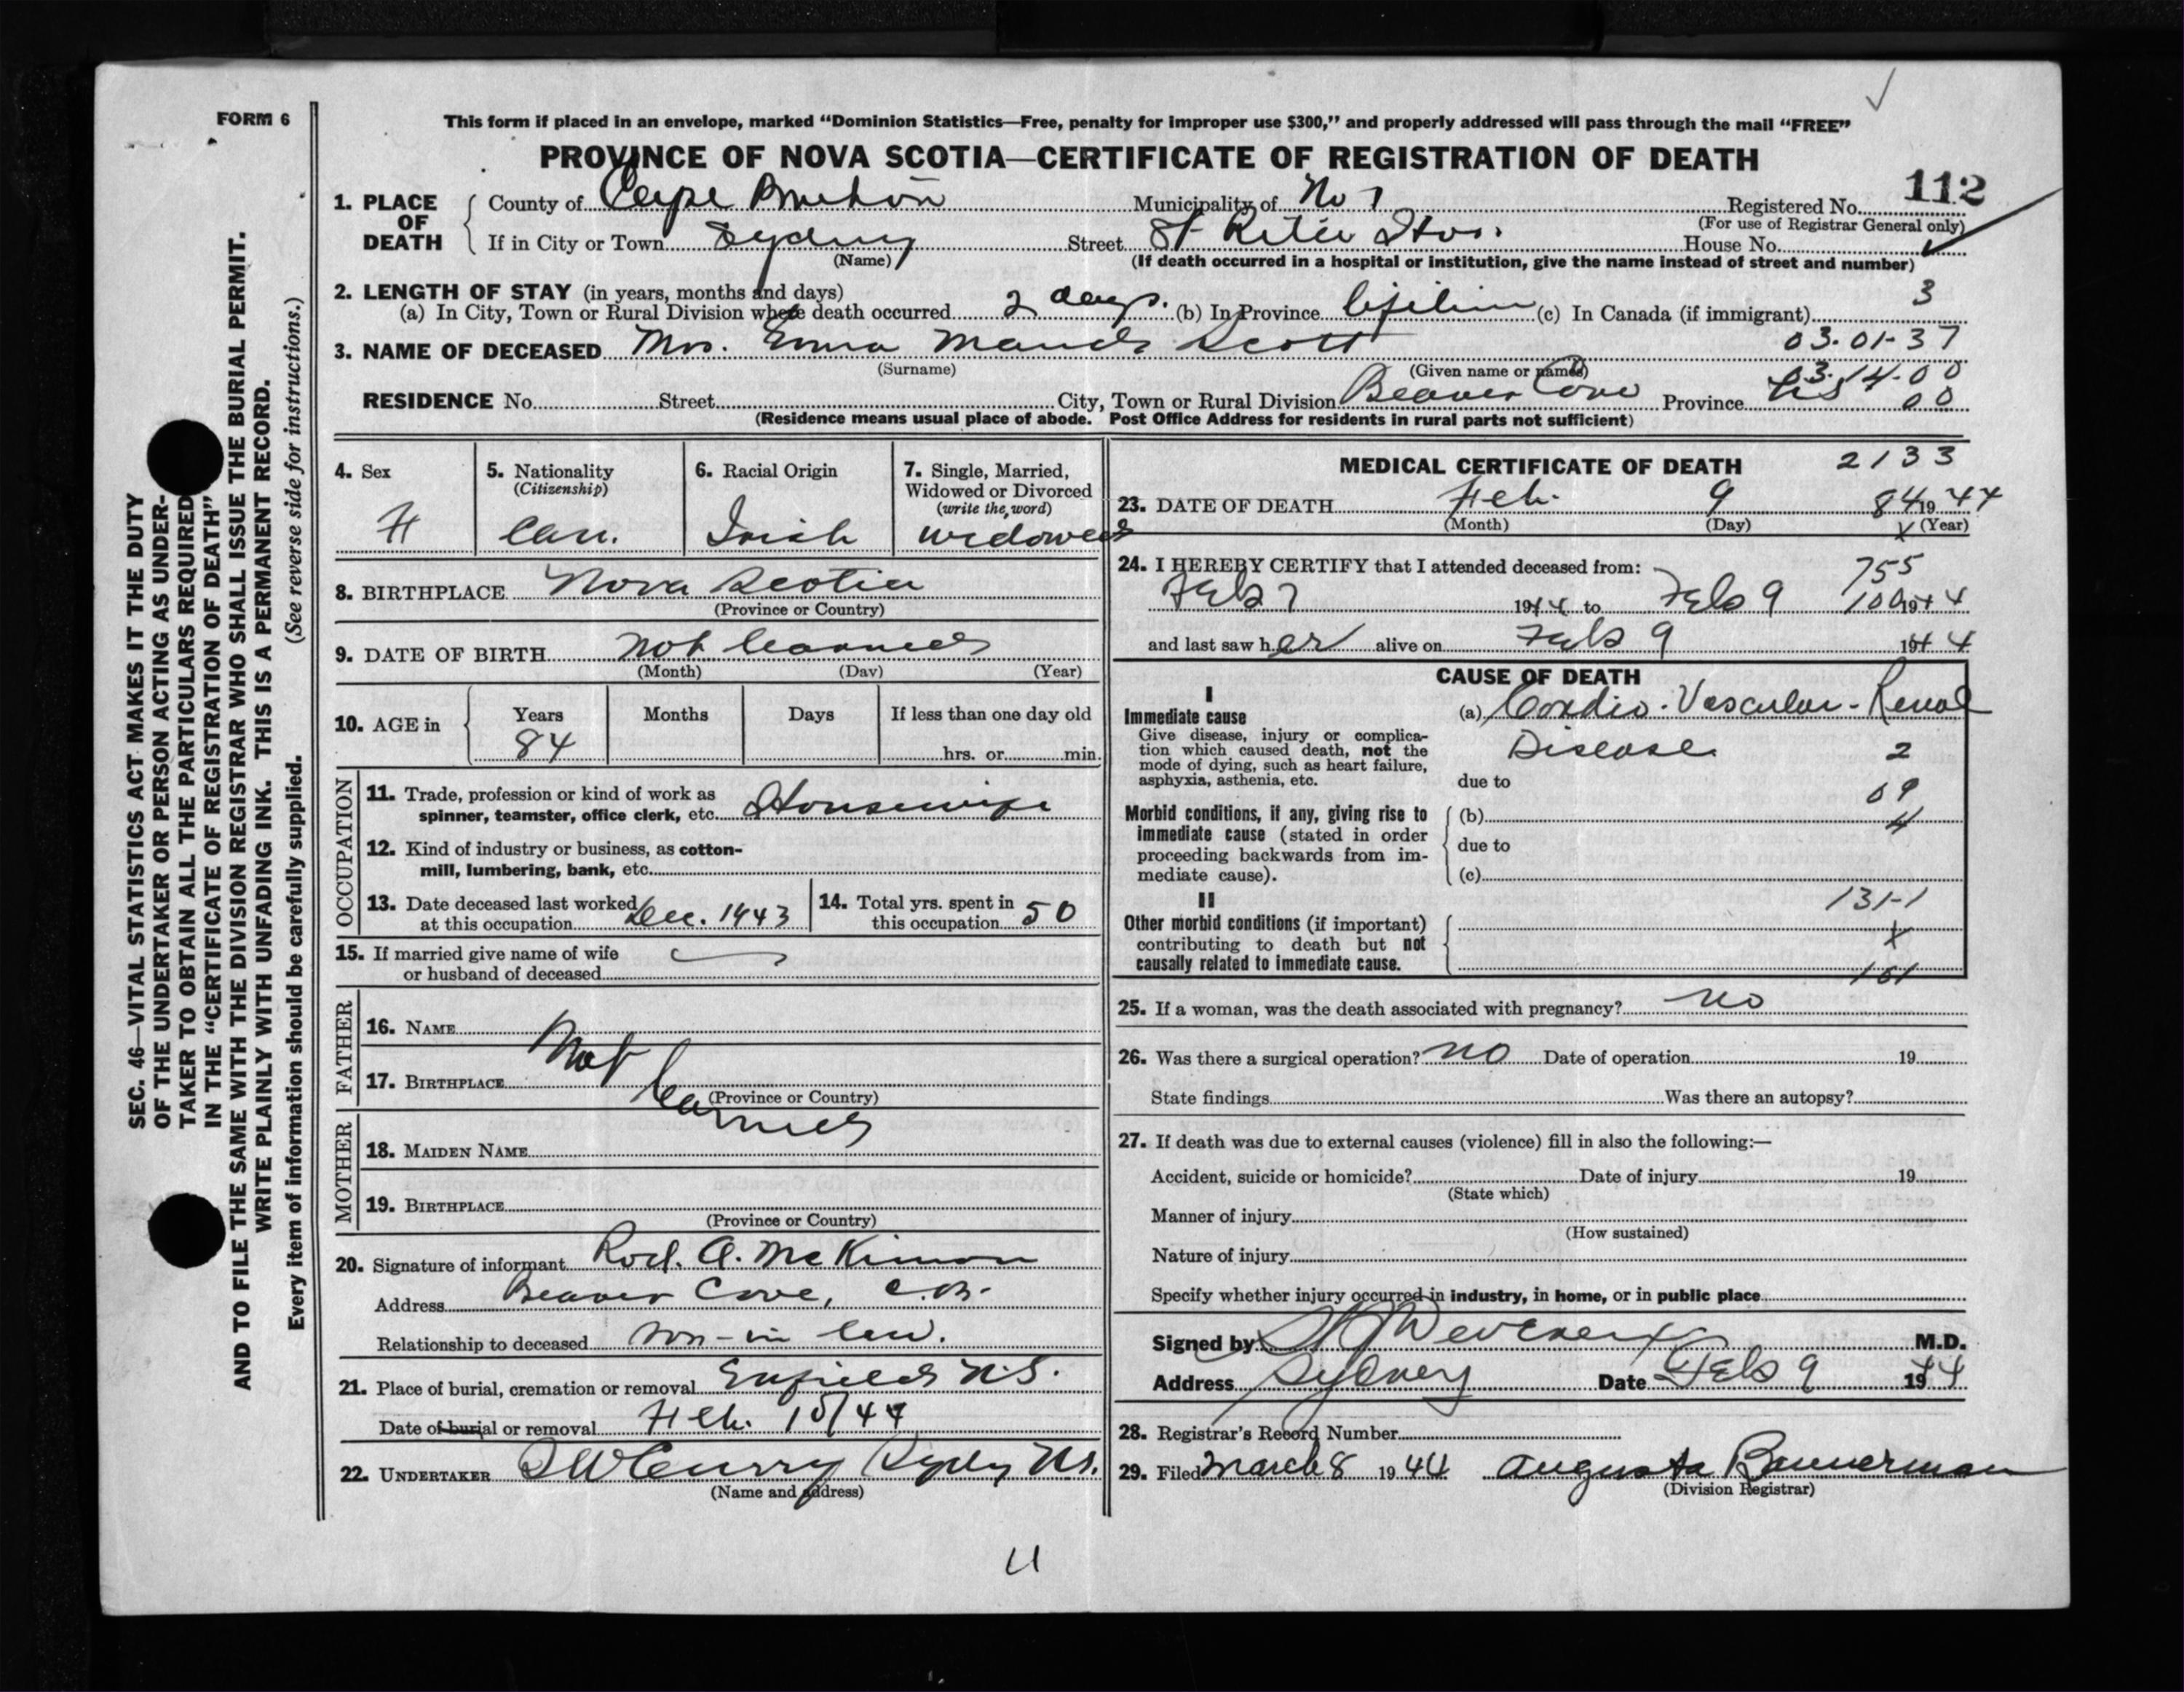 FORM 6
This form if placed in an envelope, marked “Dominion Statistics—Free, penalty for improper use $300,” and properly addressed will pass through the mail “FREE”
PROVINCE OF NOVA SCOTIA—CERTIFICATE OF REGISTRATION OF DEATH
112
1. PLACE OF DEATH
County of Cape Breton Municipality of No 1 Registered No.
(For use of Registrar General only)
If in City or Town Sydney Street St Rita Hos. House No.
(Name) (If death occurred in a hospital or institution, give the name instead of street and number)
2. LENGTH OF STAY (in years, months and days) 3
(a) In City, Town or Rural Division where death occurred 2 days. (b) In Province lifetime (c) In Canada (if immigrant)
3. NAME OF DECEASED Mrs. Emma Maude Scott 03-01-37
(Surname) (Given name or names) 03-14-00
RESIDENCE No. Street City, Town or Rural Division Beaver Cove Province NS 00
(Residence means usual place of abode. Post Office Address for residents in rural parts not sufficient)
4. Sex
F
5. Nationality
(Citizenship)
Can.
6. Racial Origin
Irish
7. Single, Married,
Widowed or Divorced
(write the word)
widowed
8. BIRTHPLACE Nova Scotia
(Province or Country)
9. DATE OF BIRTH not learned
(Month) (Day) (Year)
10. AGE in Years Months Days If less than one day old
84 hrs. or min.
OCCUPATION
11. Trade, profession or kind of work as
spinner, teamster, office clerk, etc. Housewife
12. Kind of industry or business, as cotton-
mill, lumbering, bank, etc.
13. Date deceased last worked
at this occupation Dec. 1943
14. Total yrs. spent in
this occupation 50
15. If married give name of wife
or husband of deceased
FATHER
16. NAME
Not learned
17. BIRTHPLACE
(Province or Country)
MOTHER
18. MAIDEN NAME
19. BIRTHPLACE
(Province or Country)
20. Signature of informant Rod. A. McKinnon
Address Beaver Cove, C.B.
Relationship to deceased son-in law.
21. Place of burial, cremation or removal Enfield N.S.
Date of burial or removal Feb. 10/44
22. UNDERTAKER Curry Sydney N.S.
(Name and address)
MEDICAL CERTIFICATE OF DEATH 2133
23. DATE OF DEATH Feb. 9 84 1944
(Month) (Day) X (Year)
24. I HEREBY CERTIFY that I attended deceased from: 755
Feb 7 1944 to Feb 9 100 1944
and last saw her alive on Feb 9 1944
CAUSE OF DEATH
I
Immediate cause
Give disease, injury or complica-
tion which caused death, not the
mode of dying, such as heart failure,
asphyxia, asthenia, etc.
(a) Cardio-Vascular-Renal
Disease 2
due to
09
Morbid conditions, if any, giving rise to
immediate cause (stated in order
proceeding backwards from im-
mediate cause).
(b) 4
due to
(c)
131-1
II
Other morbid conditions (if important)
contributing to death but not
causally related to immediate cause.
X
101
25. If a woman, was the death associated with pregnancy? no
26. Was there a surgical operation? no Date of operation 19
State findings Was there an autopsy?
27. If death was due to external causes (violence) fill in also the following:—
Accident, suicide or homicide? Date of injury 19
(State which)
Manner of injury
(How sustained)
Nature of injury
Specify whether injury occurred in industry, in home, or in public place
Signed by M.D.
Address Sydney Date Feb 9 1944
28. Registrar's Record Number
29. Filed March 8 1944 Augusta Bannerman
(Division Registrar)
SEC. 46—VITAL STATISTICS ACT MAKES IT THE DUTY
OF THE UNDERTAKER OR PERSON ACTING AS UNDER-
TAKER TO OBTAIN ALL THE PARTICULARS REQUIRED
IN THE “CERTIFICATE OF REGISTRATION OF DEATH”
AND TO FILE THE SAME WITH THE DIVISION REGISTRAR WHO SHALL ISSUE THE BURIAL PERMIT.
WRITE PLAINLY WITH UNFADING INK. THIS IS A PERMANENT RECORD.
Every item of information should be carefully supplied. (See reverse side for instructions.)